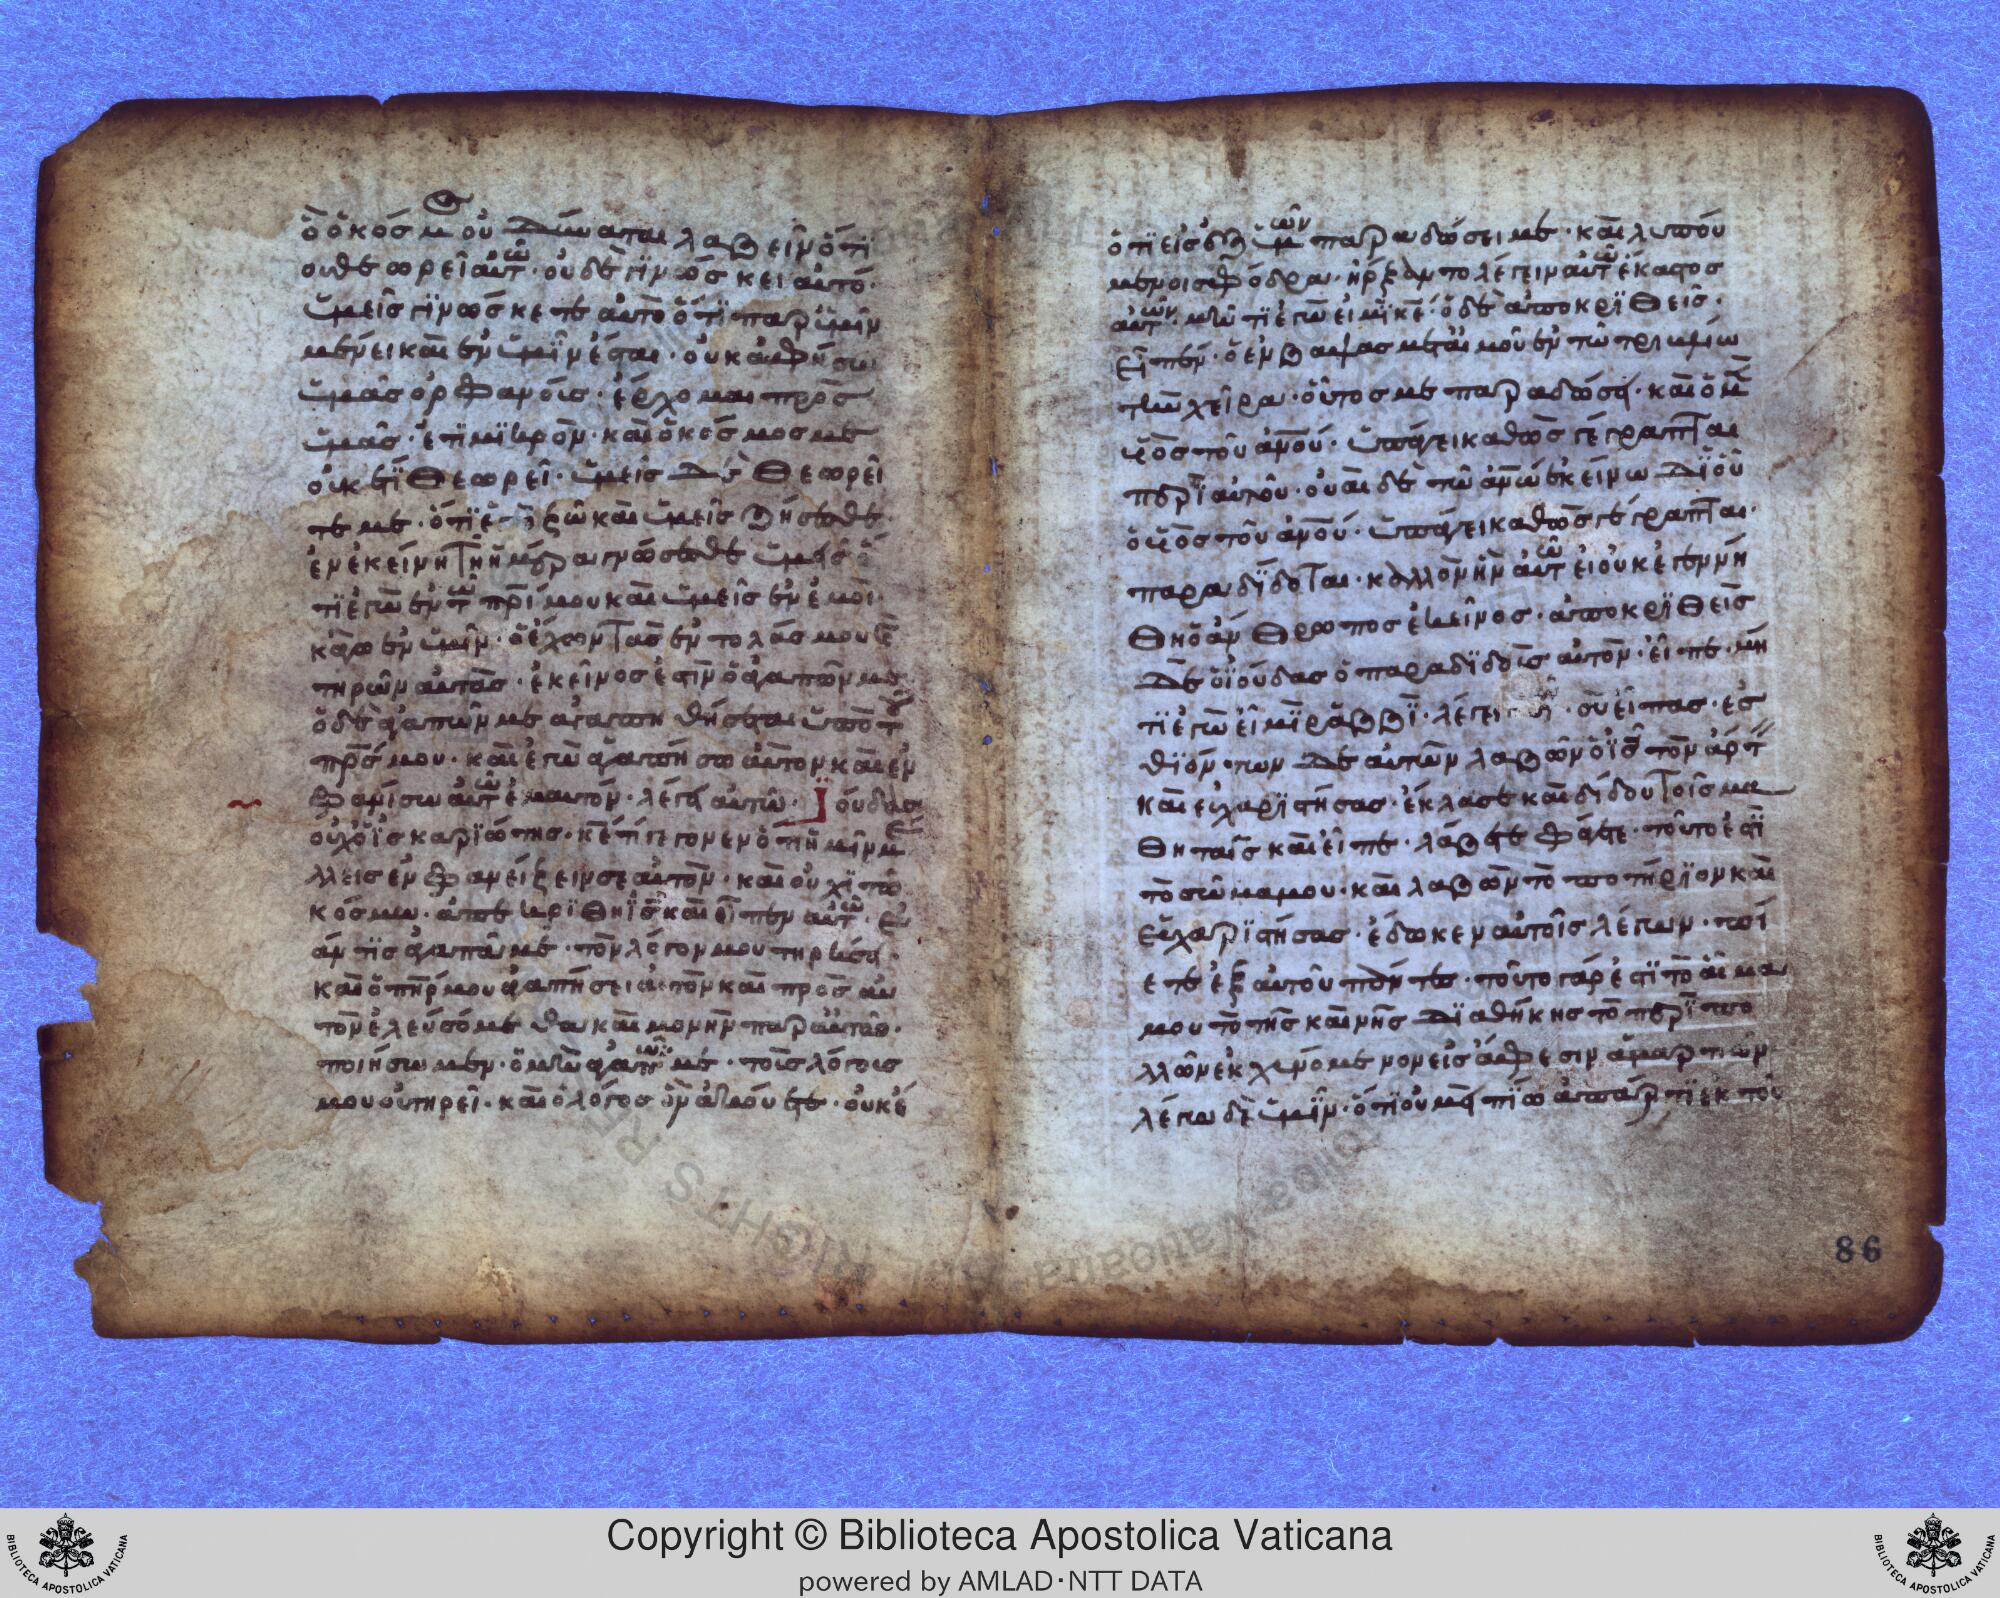 ὃ ὁ κόσμος οὐ δύναται λαβεῖν ὅτι
οὐ θεωρεῖ αὐτῶ· οὐδὲ γινώσκει αὐτό·
ὑμεῖς γινώσκετε αὐτὸ ὅτι παρ ὑμῖν
μένει καὶ ἐν ὑμῖν ἔσται· οὐκ ἀφήσω
ὑμᾶς ὀρφανοῖς· ἔρχομαι πρὸς
ὑμᾶς· ἔτι μικρὸν· καὶ ὁ κόσμος με
οὐκ ἔτι θεωρεῖ· ὑμεῖς δὲ θεωρεῖ
τε με· ὅτι ἐγὼ ζῶ καὶ ὑμεῖς ζήσεσθε·
ἐν ἐκείνη τῆ ἡμέρα γνώσεσθε ὑμεῖς ὅ
τι ἐγὼ ἐν τῶ πρι μου καὶ ὑμεῖς ἐν ἐμοὶ·
κἀγω ἐν ὑμῖν· ὁ ἔχων τὰς ἐντολάς μου καὶ
τηρῶν αὐτὰς· ἐκεῖνος ἐστὶν ὁ ἀγαπῶν με·
ὁ δὲ ἀγαπῶν με ἀγαπηθήσεται ὑπὸ τοῦ
πρς μου· καὶ ἐγὼ ἀγαπήσω αὐτὸν καὶ ἐμ
φανίσω αὐτῶ ἐμαυτόν· λέγει αὐτῶ· Ἰούδας
οὐχ ὁ ἰσκαριώτης· κε τί γέγονεν ὅτι ἡμῖν μέ
λλεις ἐμφανείζειν σεαυτὸν· καὶ οὐχὶ τῶ
κόσμω· ἀπεκρίθη ις καὶ εἶπεν αὐτῶ· ἐ
άν τις ἀγαπᾶ με· τὸν λόγον μου τηρήσει·
καὶ ὁ πηρ μου ἀγαπήσει αὐτὸν καὶ πρὸς αὐ
τὸν ἐλευσόμεθα καὶ μονὴν παρ αὐτῶ·
ποιήσωμεν· ὁ μὴ ἀγαπῶν με· τοὺς λόγους
μου οὐ τηρεῖ· καὶ ὁ λόγος ὃν ἀκούετε· οὐκ έ
ὅτι εἷς ἐξ ὑμῶν παραδώσει με· καὶ λυπού
μενοι σφόδρα· ἤρξαντο λέγειν αὐτῶ ἕκαστος
αὐτῶν· μή τι ἐγώ εἰμι κε· ὁ δὲ ἀποκριθεὶς·
εἶπεν· ὁ ἐμβάψας μετ ἐμοῦ ἐν τῶ τρυβλίω
τὴν χεῖρα· οὗτος με παραδώσει· καὶ ὁ μὲν
υἱὸς τοῦ ἀνου· ὑπάγει καθὼς γέγραπται
περὶ αὐτοῦ· οὐαὶ δὲ τῶ ἀνω ἐκείνω δι οὗ
ὁ υἱὸς τοῦ ἀνου· ὑπάγει καθὼς γέγραπται·
παραδίδοται· καλλὸν ἦν αὐτῶ εἰ οὐκ ἐγεννή
θη ὁ ἄνθρωπος ἐκεῖνος· ἀποκριθεὶς
δὲ ὁ ἰούδας ὁ παραδιδοὺς αὐτὸν· εἶπε· μή
τι ἐγώ εἰμι ῥαββῒ· λέγει · σὺ εἶπας· ἐσ
θιόντων δὲ αὐτῶν λαβὼν ὁ ις τὸν ἄρτ
καὶ εὐχαριστήσας· ἔκλασε καὶ δίδου τοῖς μα
θηταῖς καὶ εἶπε· λάβετε φάγετε· τοῦτο ἐστὶ
τὸ σῶμα μου· καὶ λαβὼν τὸ ποτήριον καὶ
εὐχαριστήσας· ἔδωκεν αὐτοῖς λέγων· πί
ετε ἐξ αὐτοῦ πάντες· τοῦτο γάρ ἐστι τὸ αἷμα
μου τὸ τῆς καινῆς διαθήκης τὸ περὶ πο
λλῶν ἐκχυνόμενον εἰς ἄφεσιν ἁμαρτιῶν
λέγω δὲ ὑμῖν· ὅτι οὐ μὴ πίω ἀπάρτι ἐκ τοῦ
86
Copyright © Biblioteca Apostolica Vaticana
powered by AMLAD·NTT DATA
BIBLIOTECA APOSTOLICA VATICANA
BIBLIOTECA APOSTOLICA VATICANA